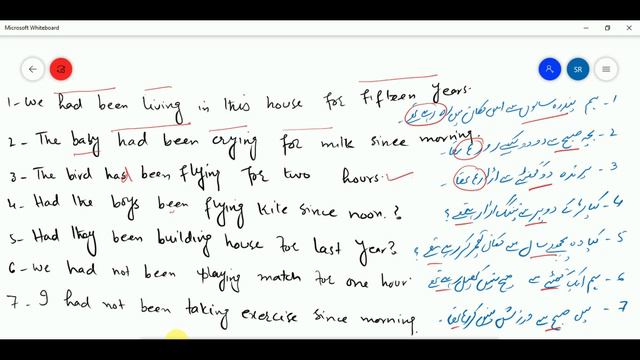 Microsoft Whiteboard
SR
1- We had been living in this house for fifteen years.
1- ہم پندرہ سالوں سے اس مکان میں رہ رہے تھے۔
2- The baby had been crying for milk since morning.
2- بچہ صبح سے دودھ کیلئے رو رہا تھا۔
3- The bird had been flying for two hours.
3- پرندہ دو گھنٹے سے اڑ رہا تھا۔
4- Had the boys been flying kite since noon.?
4- کیا لڑکے دوپہر سے پتنگ اڑا رہے تھے؟
5- Had they been building house for last year?
5- کیا وہ پچھلے سال سے مکان تعمیر کر رہے تھے؟
6- We had not been playing match for one hour.
6- ہم ایک گھنٹے سے میچ نہیں کھیل رہے تھے
7- I had not been taking exercise since morning.
7- میں صبح سے ورزش نہیں کر رہا تھا